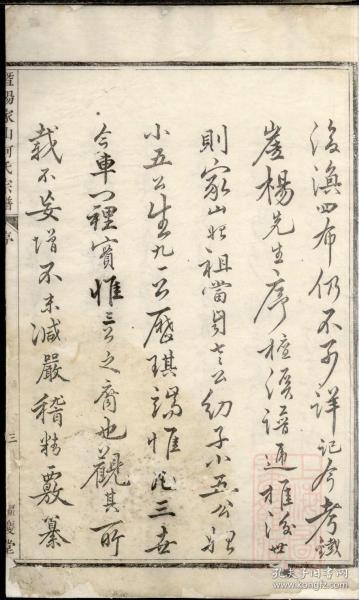 後漢四布仍不可詳記今考鐵
崖楊先生序檀溪譜通推後世
則家山始祖當自七公幼子小五公始
小五公生九一公歷琪瑞惟三世
今車門裡實惟三公之裔也觀其所
載不妄增不末減嚴稽精覈纂
暨陽家山何氏宗譜
序
三
堂
孔夫子旧书网